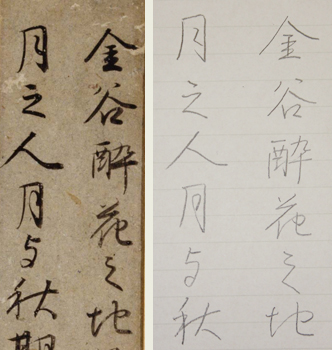 金谷酔花之地
月之人月与秋期
金谷酔花之地
月之人月与秋